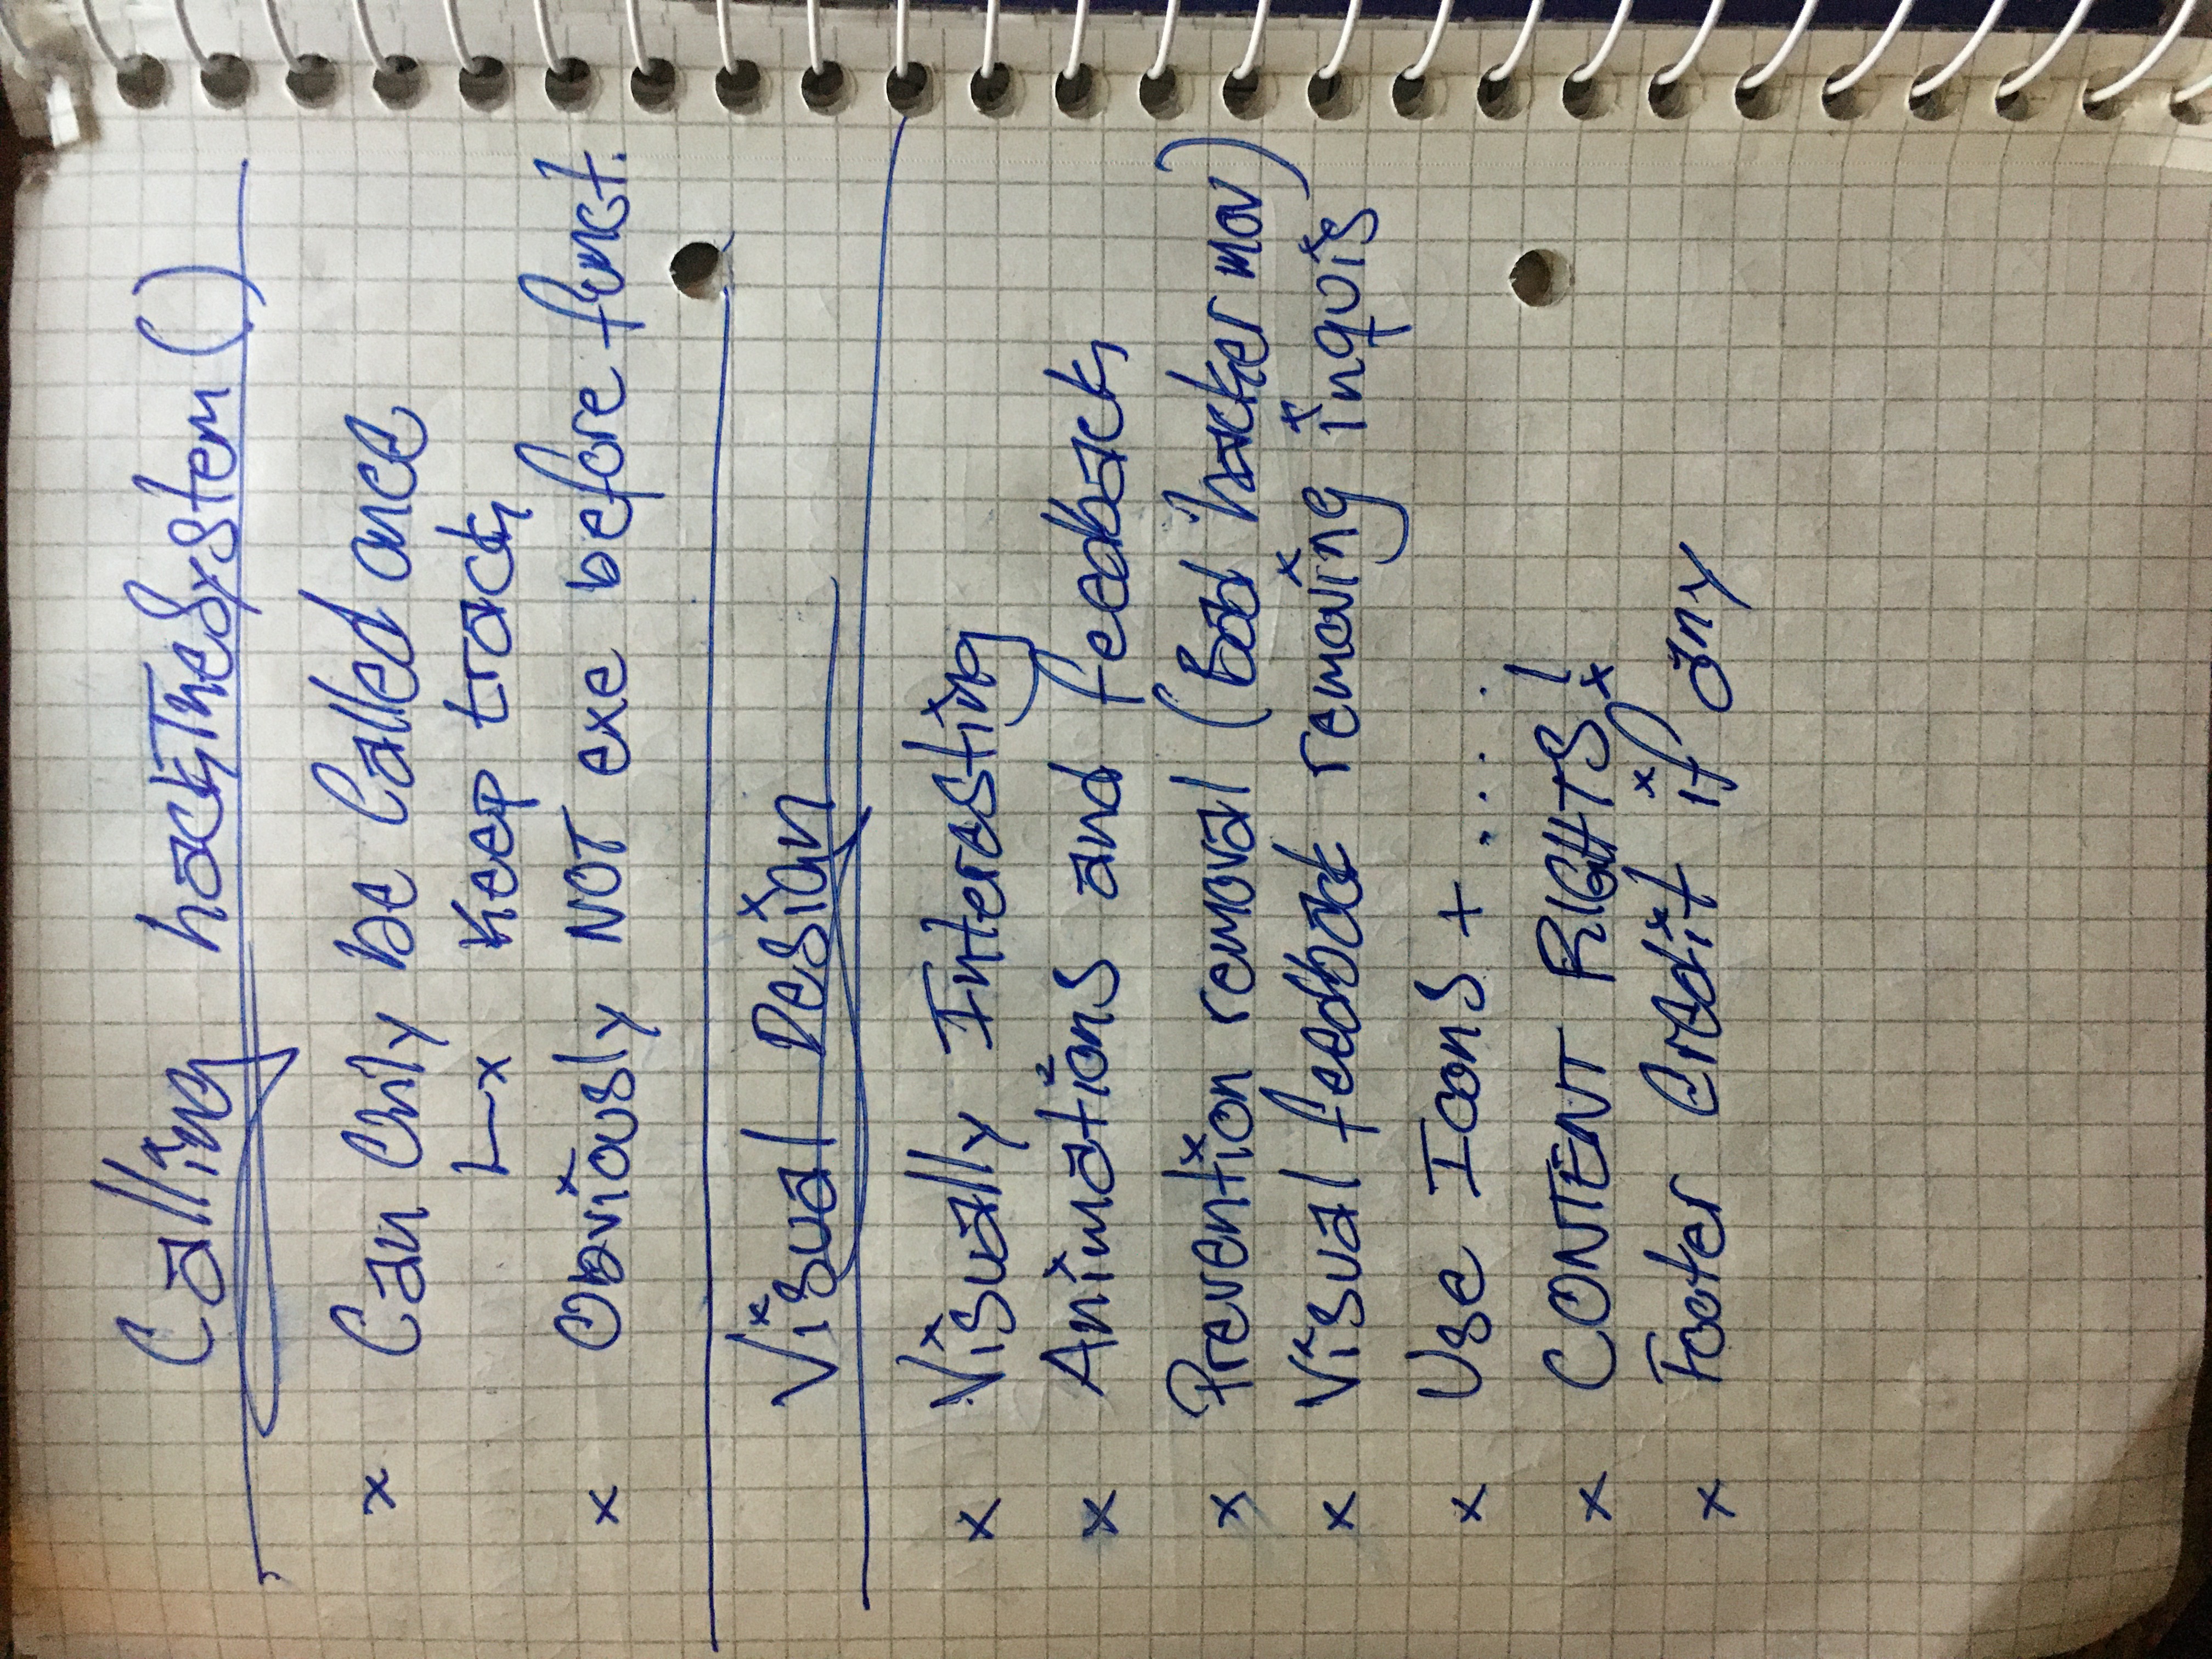 Calling hackTheSystem()
x Can Only be Called once
x Keep track
x Obviously NOT exe before funct.
Visual Design
x Visually Interesting
x Animations and feedback
x Prevention removal (Bad hacker mov)
x Visual feedback removing inquis
x Use Icons + .....
x CONTENT RIGHTS!
x Footer Credit if any